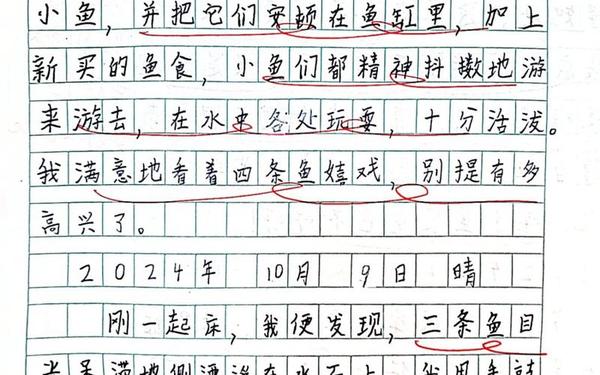 小鱼，并把它们安顿在鱼缸里，加上
新买的鱼食，小鱼们都精神抖擞地游
来游去，在水中各处玩耍，十分活泼。
我满意地看着四条鱼嬉戏，别提有多
高兴了。
2024年 10月 9日 晴
刚一起床，我便发现，三条鱼目